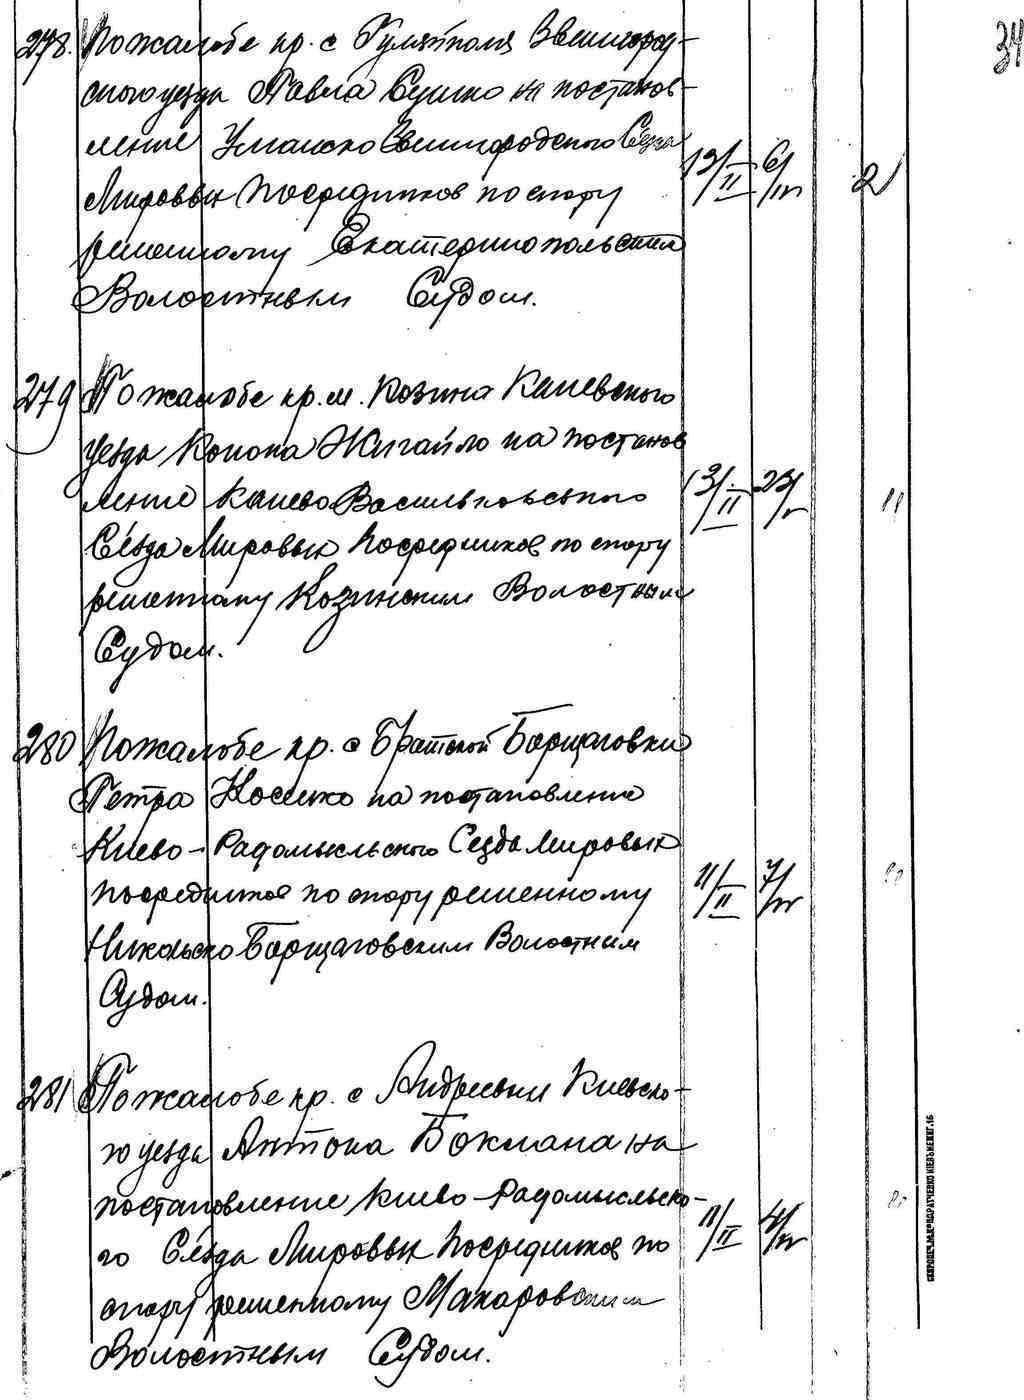 34
278. По жалобе кр. с Гуляйполя Звенигород-
ского уезда Павла Сушко на постанов-
ление Уманско Звенигородского Сезда
Мировых Посредников по спору
13/II 6/IV 2
решенному Екатеринопольским
Волостным Судом.
279 По жалобе кр. м. Козина Каневского
уезда Конона Жигайло на постанов
ление Канево Васильковского
13/II 23/V 11
Сезда Мировых Посредников по спору
решенному Козинским Волостным
Судом.
280 По жалобе кр. с Братской Борщаговки
Петра Носенко на постановление
Киево-Радомысльского Сезда Мировых
посредников по спору решенному
11/II 7/IV
Никольско Борщаговским Волостным
Судом.
281 По жалобе кр. с Андреевки Киевско-
го уезда Антона Боклана на
постановление Киево-Радомысльско-
го Сезда Мировых Посредников по
11/II 4/IV
спору решенному Макаровским
Волостным Судом.